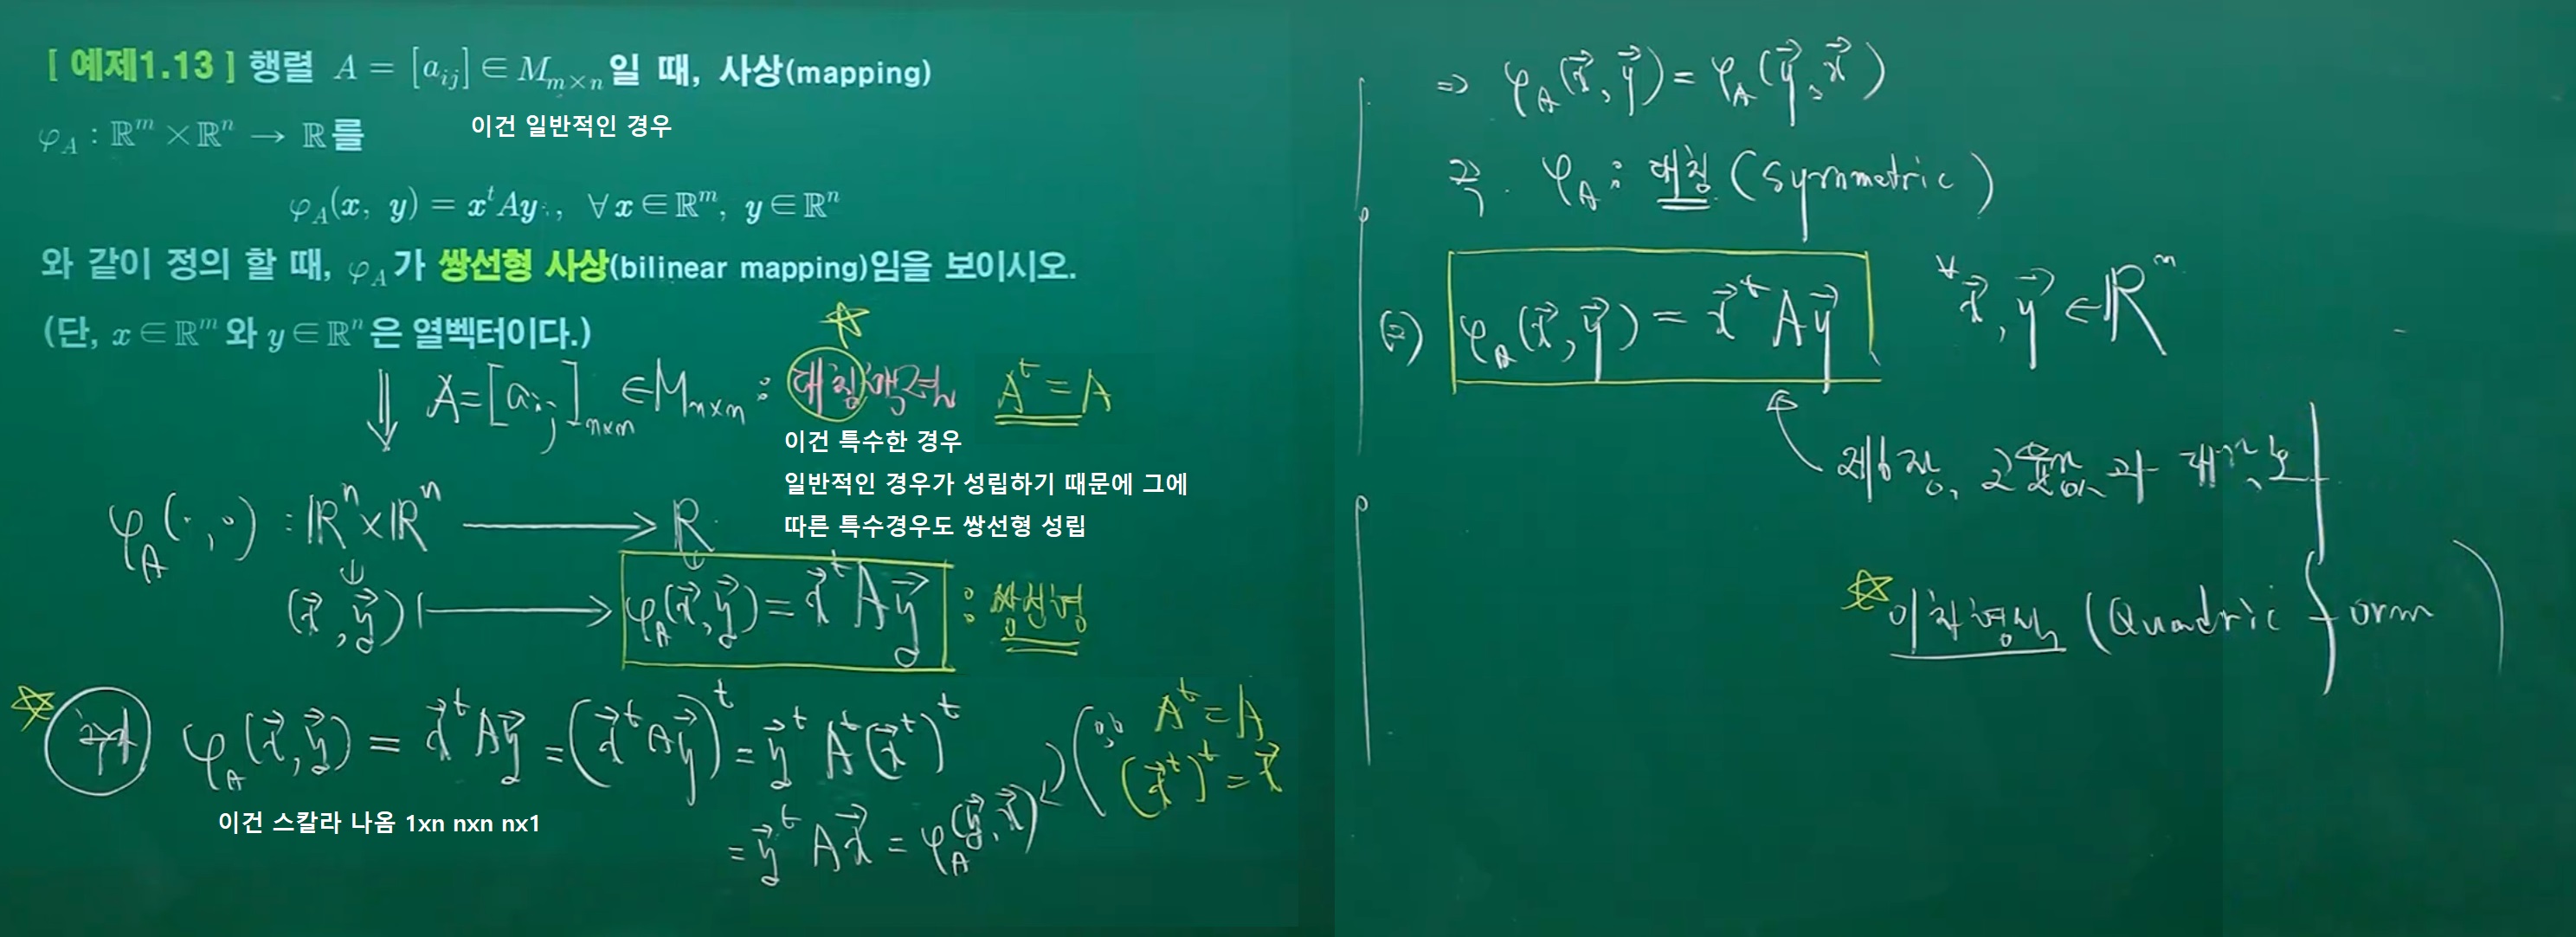 [ 예제1.13 ] 행렬 A = [a_{ij}] ∈ M_{m×n} 일 때, 사상(mapping)
이건 일반적인 경우
φ_A : ℝ^m × ℝ^n → ℝ를
φ_A(x, y) = x^t Ay , ∀x ∈ ℝ^m, y ∈ ℝ^n
와 같이 정의 할 때, φ_A가 쌍선형 사상(bilinear mapping)임을 보이시오.
(단, x ∈ ℝ^m 와 y ∈ ℝ^n 은 열벡터이다.)
⇓ A = [a_{ij}]_{n×n} ∈ M_{n×n} : 대칭행렬 A^t = A
이건 특수한 경우
일반적인 경우가 성립하기 때문에 그에
따른 특수경우도 쌍선형 성립
φ_A(·,·) : ℝ^n × ℝ^n → ℝ
(x⃗, y⃗) ↦ φ_A(x⃗, y⃗) = x⃗^t A y⃗ : 쌍선형
φ_A(x⃗, y⃗) = x⃗^t A y⃗ = (x⃗^t A y⃗)^t = y⃗^t A^t (x⃗^t)^t
(∵ A^t = A
(x⃗^t)^t = x⃗
이건 스칼라 나옴 1xn nxn nx1
= y⃗^t A x⃗ = φ_A(y⃗, x⃗)
⇒ φ_A(x⃗, y⃗) = φ_A(y⃗, x⃗)
즉. φ_A : 대칭 (Symmetric)
φ_A(x⃗, y⃗) = x⃗^t A y⃗ ∀x⃗, y⃗ ∈ ℝ^n
제6장,
이차형식 (Quadric form)